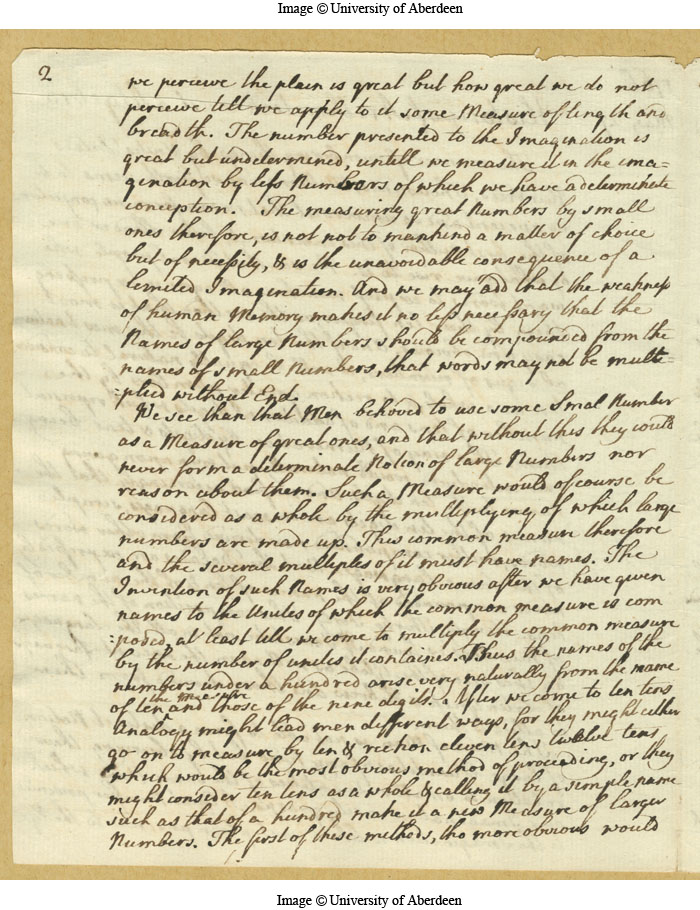 Image © University of Aberdeen
2
we perceive the plain is great but how great we do not
perceive till we apply to it some Measure of length and
breadth. The number presented to the Imagination is
great but undetermined, untill we measure it in the ima=
gination by less Numbers of which we have a determinate
conception. The measuring great Numbers by small
ones therefore, is not not to mankind a matter of choice
but of necessity, & is the unavoidable consequence of a
limited Imagination. And we may add that the weakness
of human Memory makes it no less necessary that the
Names of large Numbers should be compounded from the
names of small Numbers, that words may not be multi=
=plied without End.
We see than that Men behoved to use some Smal Number
as a Measure of great ones, and that without this they could
never form a determinate Notion of large Numbers nor
reason about them. Such a Measure would of course be
considered as a whole by the multiplying of which large
numbers are made up. This common measure therefore
and the several multiples of it must have names. The
Invention of such Names is very obvious after we have given
names to the Unites of which the common measure is com
=posed, at least till we come to multiply the common measure
by the number of unites it containes. Thus the names of the
numbers under a hundred arise very naturally from the name
of ten the measure and those of the nine digits. After we come to ten tens
Analogy might lead men different ways, for they might either
go on to measure by ten & reckon eleven tens twelve tens
which would be the most obvious method of proceeding, or they
might consider ten tens as a whole & calling it by a simple name
such as that of a hundred make it a new Measure of larger
Numbers. The first of these methods, tho more obvious would
Image © University of Aberdeen